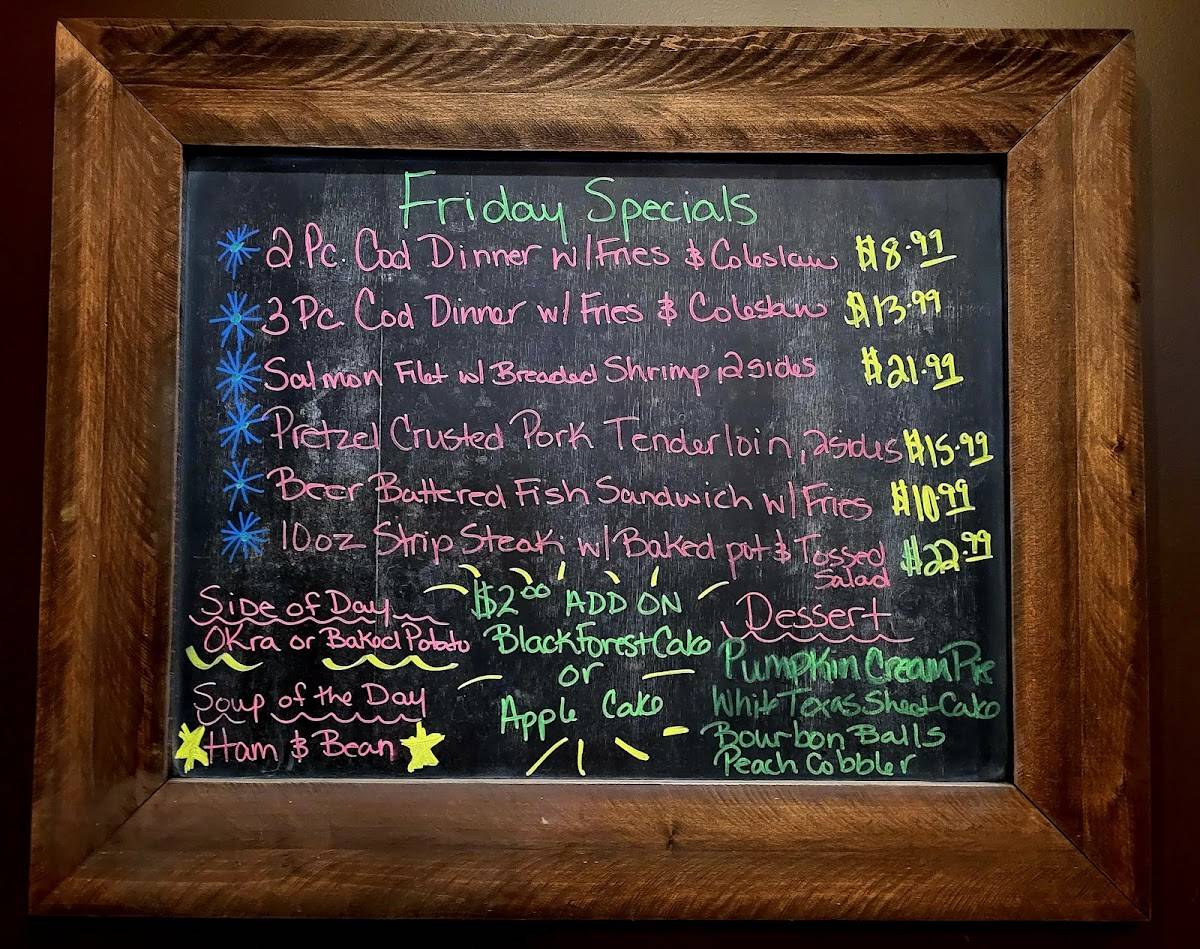 Friday Specials
2 Pc. Cod Dinner w/Fries & Coleslaw $8.99
3 Pc. Cod Dinner w/ Fries & Coleslaw $13.99
Salmon Filet w/ Breaded Shrimp, 2 sides $21.99
Pretzel Crusted Pork Tenderloin, 2 sides $15.99
Beer Battered Fish Sandwich w/ Fries $10.99
10 oz Strip Steak w/ Baked pot & Tossed $22.99
Salad
Side of Day
Okra or Baked Potato
Soup of the Day
Ham & Bean
$2.00 ADD ON
Black Forest Cake
or
Apple Cake
Dessert
Pumpkin Cream Pie
White Texas Sheet Cake
Bourbon Balls
Peach Cobbler